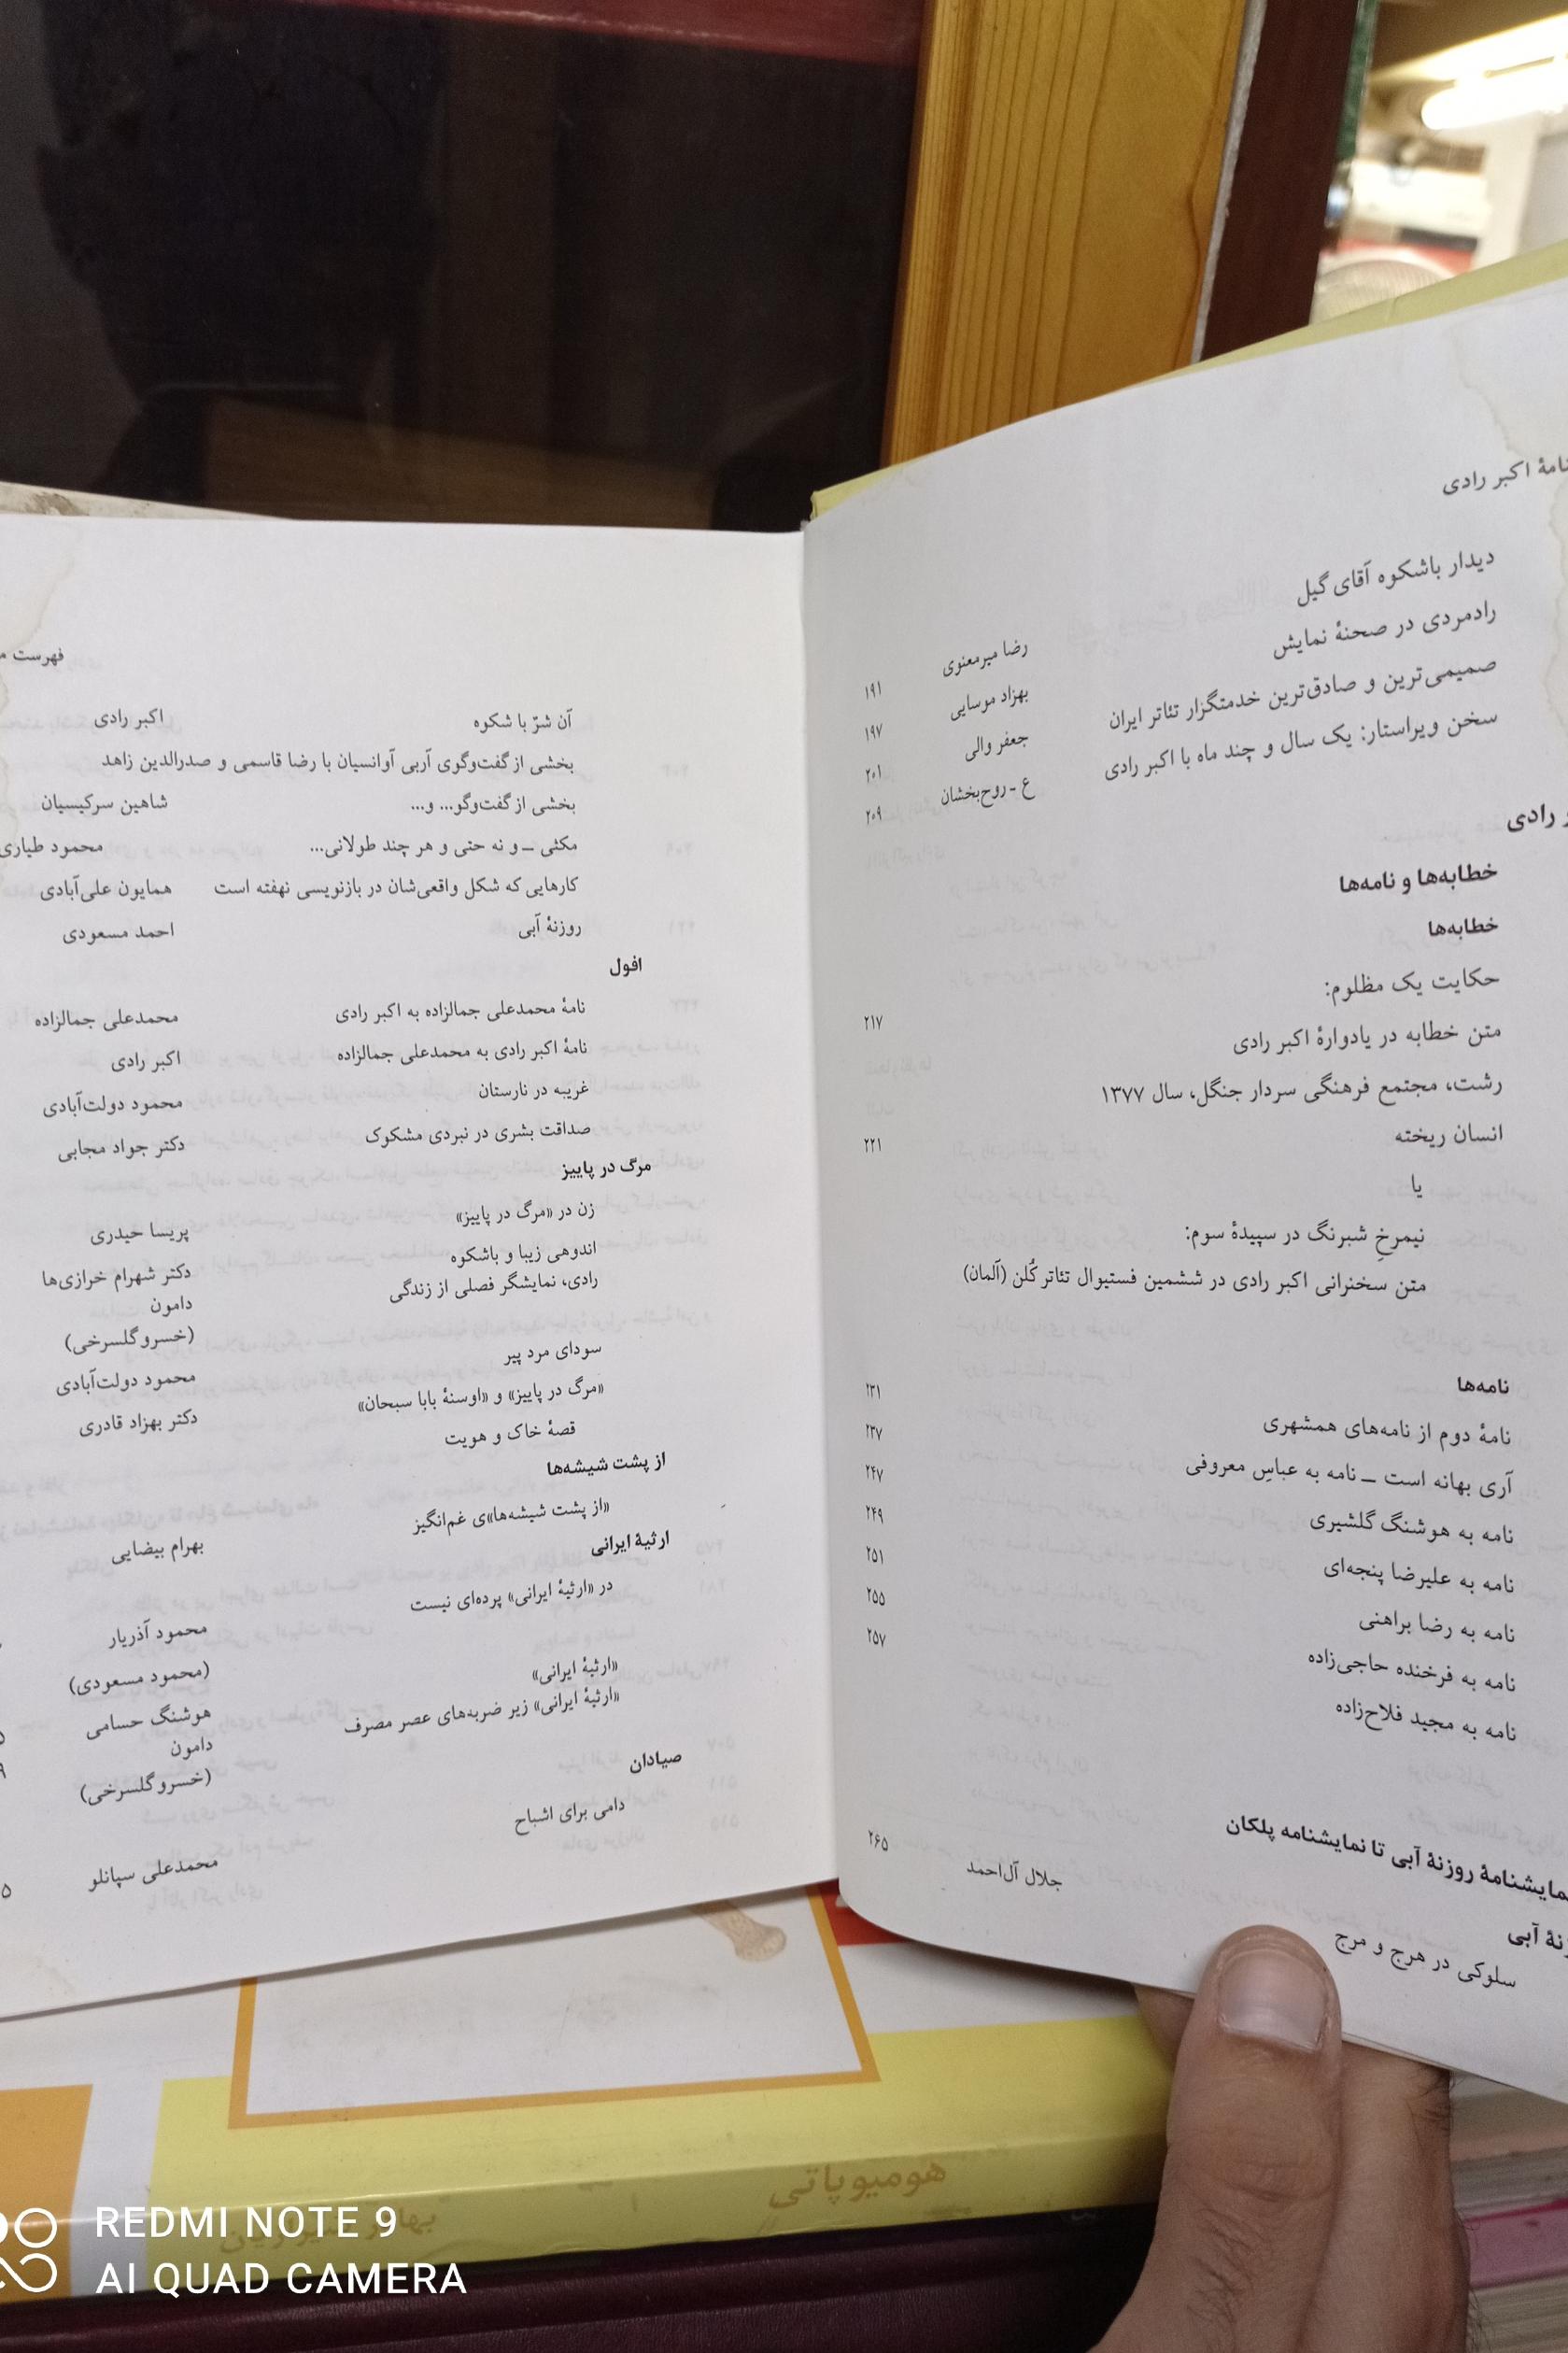 نامهٔ اکبر رادی
دیدار باشکوه آقای گیل رضا میرمعنوی ۱۹۱
رادمردی در صحنهٔ نمایش بهزاد موسایی ۱۹۷
صمیمی‌ترین و صادق‌ترین خدمتگزار تئاتر ایران جعفر والی ۲۰۱
سخن ویراستار: یک سال و چند ماه با اکبر رادی ع - روح‌بخشان ۲۰۹
رادی
خطابه‌ها و نامه‌ها
خطابه‌ها
حکایت یک مظلوم: ۲۱۷
متن خطابه در یادوارهٔ اکبر رادی
رشت، مجتمع فرهنگی سردار جنگل، سال ۱۳۷۷
انسان ریخته ۲۲۱
یا
نیمرخِ شبرنگ در سپیدهٔ سوم:
متن سخنرانی اکبر رادی در ششمین فستیوال تئاتر کُلن (آلمان)
نامه‌ها
نامهٔ دوم از نامه‌های همشهری ۲۳۱
آری بهانه است ـ نامه به عباسِ معروفی ۲۳۷
نامه به هوشنگ گلشیری ۲۴۷
نامه به علیرضا پنجه‌ای ۲۴۹
نامه به رضا براهنی ۲۵۱
نامه به فرخنده حاجی‌زاده ۲۵۵
نامه به مجید فلاح‌زاده ۲۵۷
نمایشنامهٔ روزنهٔ آبی تا نمایشنامه پلکان
آبی
سلوکی در هرج و مرج جلال آل‌احمد ۲۶۵
فهرست
آن شرّ با شکوه اکبر رادی
بخشی از گفت‌وگوی آربی آوانسیان با رضا قاسمی و صدرالدین زاهد
بخشی از گفت‌وگو... و... شاهین سرکیسیان
مکثی ـ و نه حتی و هر چند طولانی... محمود طیاری
کارهایی که شکل واقعی‌شان در بازنویسی نهفته است همایون علی‌آبادی
روزنهٔ آبی احمد مسعودی
افول
نامهٔ محمدعلی جمالزاده به اکبر رادی محمدعلی جمالزاده
نامهٔ اکبر رادی به محمدعلی جمالزاده اکبر رادی
غریبه در نارستان محمود دولت‌آبادی
صداقت بشری در نبردی مشکوک دکتر جواد مجابی
مرگ در پاییز
زن در «مرگ در پاییز» پریسا حیدری
اندوهی زیبا و باشکوه دکتر شهرام خرازی‌ها
رادی، نمایشگر فصلی از زندگی دامون
(خسرو گلسرخی)
سودای مرد پیر محمود دولت‌آبادی
«مرگ در پاییز» و «اوسنهٔ بابا سبحان» دکتر بهزاد قادری
قصهٔ خاک و هویت
از پشت شیشه‌ها
«از پشت شیشه‌ها»ی غم‌انگیز بهرام بیضایی
ارثیهٔ ایرانی
در «ارثیهٔ ایرانی» پرده‌ای نیست محمود آذریار
(محمود مسعودی)
«ارثیهٔ ایرانی» هوشنگ حسامی
«ارثیهٔ ایرانی» زیر ضربه‌های عصر مصرف دامون
(خسرو گلسرخی)
صیادان
دامی برای اشباح محمدعلی سپانلو
هومیوپاتی
REDMI NOTE 9
AI QUAD CAMERA